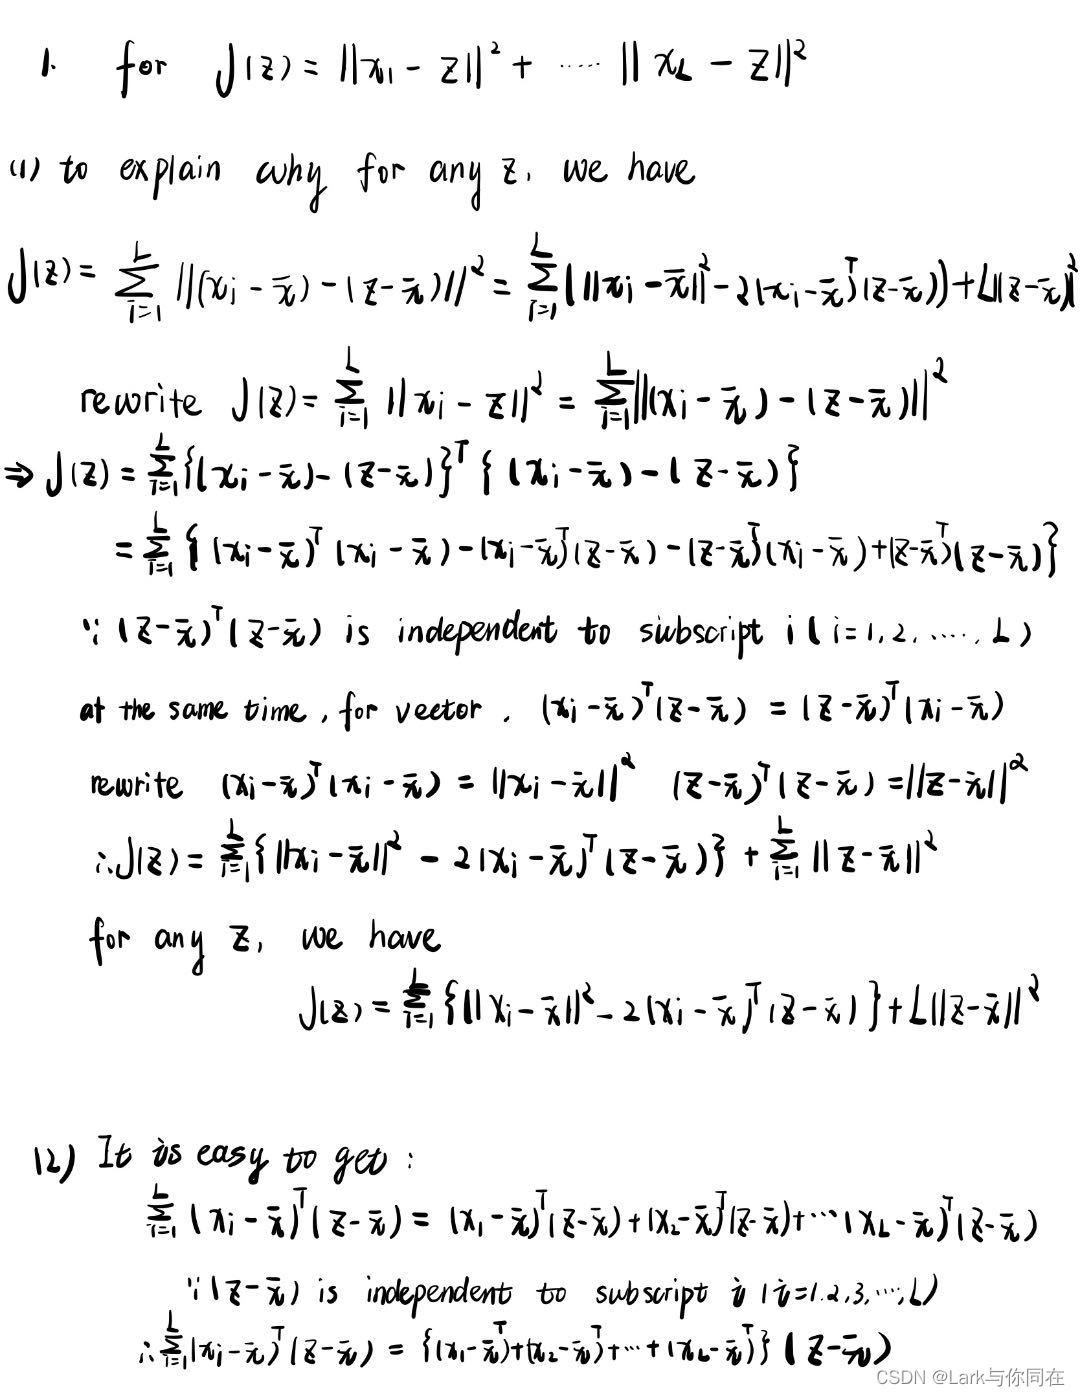 1. for J(z) = ||x₁ - z||² + ····· ||x_L - z||²
(1) to explain why for any z, we have
J(z) = ∑_{i=1}^{L} ||(x_i - x̄) - (z - x̄)||² = ∑_{i=1}^{L} (||x_i - x̄||² - 2(x_i - x̄)^T (z - x̄)) + L||z - x̄||²
rewrite J(z) = ∑_{i=1}^{L} ||x_i - z||² = ∑_{i=1}^{L} ||(x_i - x̄) - (z - x̄)||²
⇒ J(z) = ∑_{i=1}^{L} {(x_i - x̄) - (z - x̄)}^T {(x_i - x̄) - (z - x̄)}
= ∑_{i=1}^{L} {(x_i - x̄)^T (x_i - x̄) - (x_i - x̄)^T (z - x̄) - (z - x̄)^T (x_i - x̄) + (z - x̄)^T (z - x̄)}
∵ (z - x̄)^T (z - x̄) is independent to subscript i (i=1,2,·····,L)
at the same time, for vector, (x_i - x̄)^T (z - x̄) = (z - x̄)^T (x_i - x̄)
rewrite (x_i - x̄)^T (x_i - x̄) = ||x_i - x̄||² (z - x̄)^T (z - x̄) = ||z - x̄||²
∴ J(z) = ∑_{i=1}^{L} {||x_i - x̄||² - 2(x_i - x̄)^T (z - x̄)} + ∑_{i=1}^{L} ||z - x̄||²
for any z, we have
J(z) = ∑_{i=1}^{L} {||x_i - x̄||² - 2(x_i - x̄)^T (z - x̄)} + L||z - x̄||²
(2) It is easy to get :
∑_{i=1}^{L} (x_i - x̄)^T (z - x̄) = (x₁ - x̄)^T (z - x̄) + (x₂ - x̄)^T (z - x̄) + ··· (x_L - x̄)^T (z - x̄)
∵ (z - x̄) is independent to subscript i (i=1,2,3,···,L)
∴ ∑_{i=1}^{L} (x_i - x̄)^T (z - x̄) = {(x₁ - x̄)^T + (x₂ - x̄)^T + ··· + (x_L - x̄)^T} (z - x̄)
CSDN @Lark与你同在